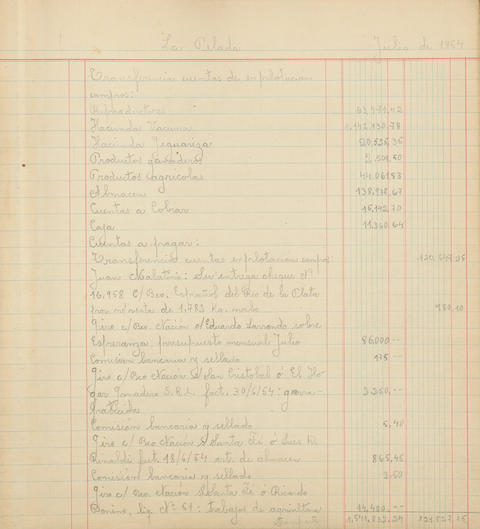 La Pelada Julio de 1954
Transferencia cuentas de explotacion
campos:
Reproductores 53.471,42
Hacienda Vacuna 1.142.130.78
Hacienda Yeguariza 20.525,35
Productos ganaderos 2.501,50
Productos agricolas 44.061,83
Almacen 138.238,67
Cuentas a Cobrar 15.142,70
Caja 11.350.64
Cuentas a pagar:
Transferencia cuentas explotacion campos:
Juan Malatini: Su entrega cheque Nº
16.958 c/Bco. Español del Rio de la Plata
por m/venta de 1.783 Kg. 980.10
Giro c/Bco. Nación o/Eduardo sobre
Esperanza, presupuesto mensual Julio 86.000--
Comisión bancaria y sellado 175--
Giro c/Bco Nación S/San Cristobal ó El Ho-
gar Ganadero S.R.L. fact. 30/6/54: 3.350,--
Comisión bancaria y sellado 5,40
Giro c/ Bco Nación S/Santa Fé ó Luis R.
Rinaldi fact. 18/6/54 art. de almacen 865,45
Comisión bancaria y sellado 3.50
Giro c/ Bco Nación S/Santa Fé ó Ricardo
Bonino, liq. Nº 51: trabajos de agricultura 14.400,--